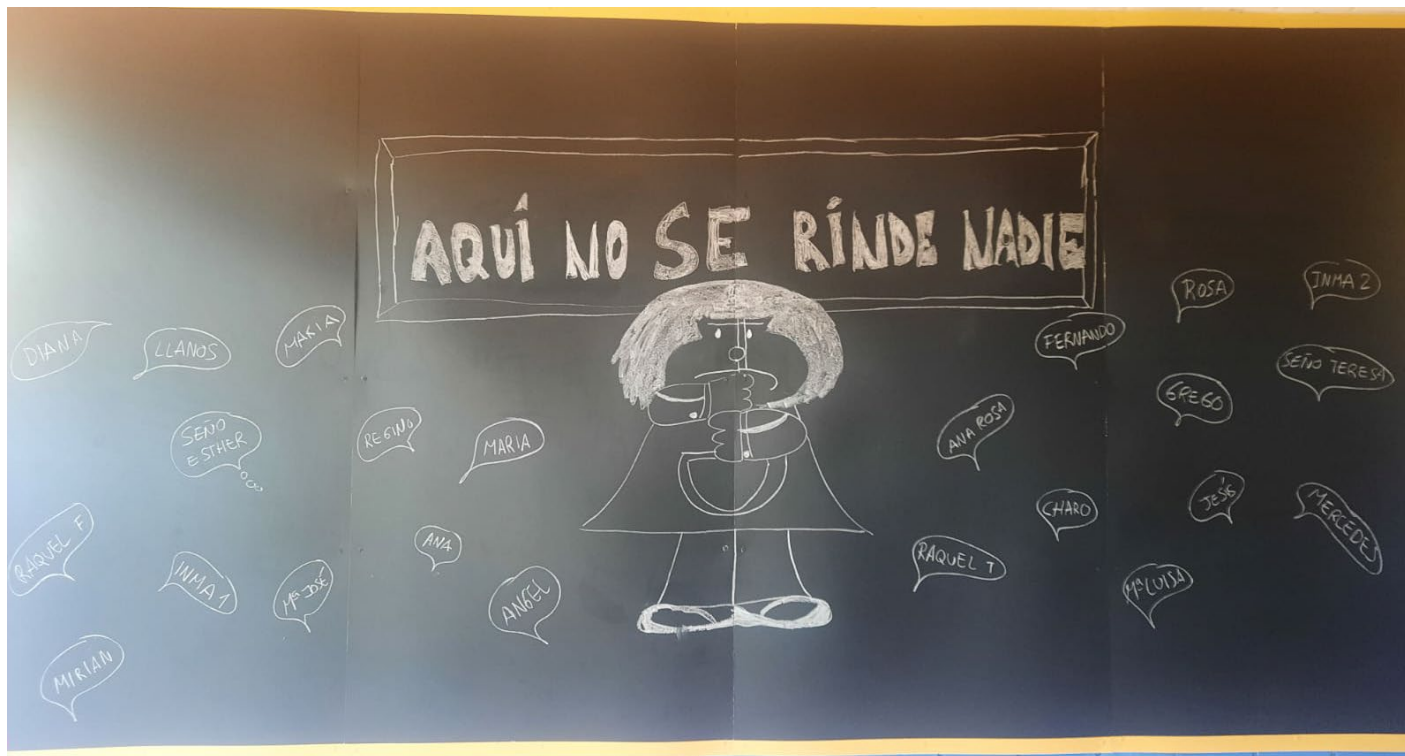 AQUÍ NO SE RÍNDE NADIE
DIANA
LLANOS
MARIA
SEÑO
ESTHER
REGINO
MARIA
RAQUEL F
INMA 1
Mª JOSÉ
ANA
ANGEL
MIRIAN
FERNANDO
ROSA
INMA 2
SEÑO TERESA
GREGO
ANA ROSA
CHARO
JESÚS
MERCEDES
RAQUEL T
Mª LUISA